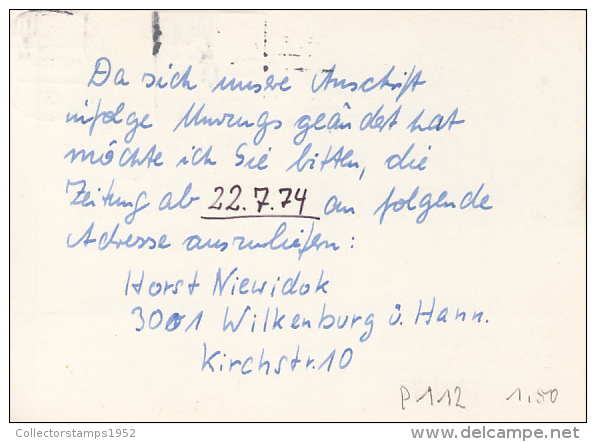 Da sich unsere Anschrift
infolge Umzugs geändert hat
möchte ich Sie bitten, die
Zeitung ab 22.7.74 an folgende
Adresse auszuliefern:
Horst Niewidok
3001 Wilkenburg ü. Hann.
Kirchstr. 10
P 112 1.50
Collectorstamps1952
www.delcampe.net